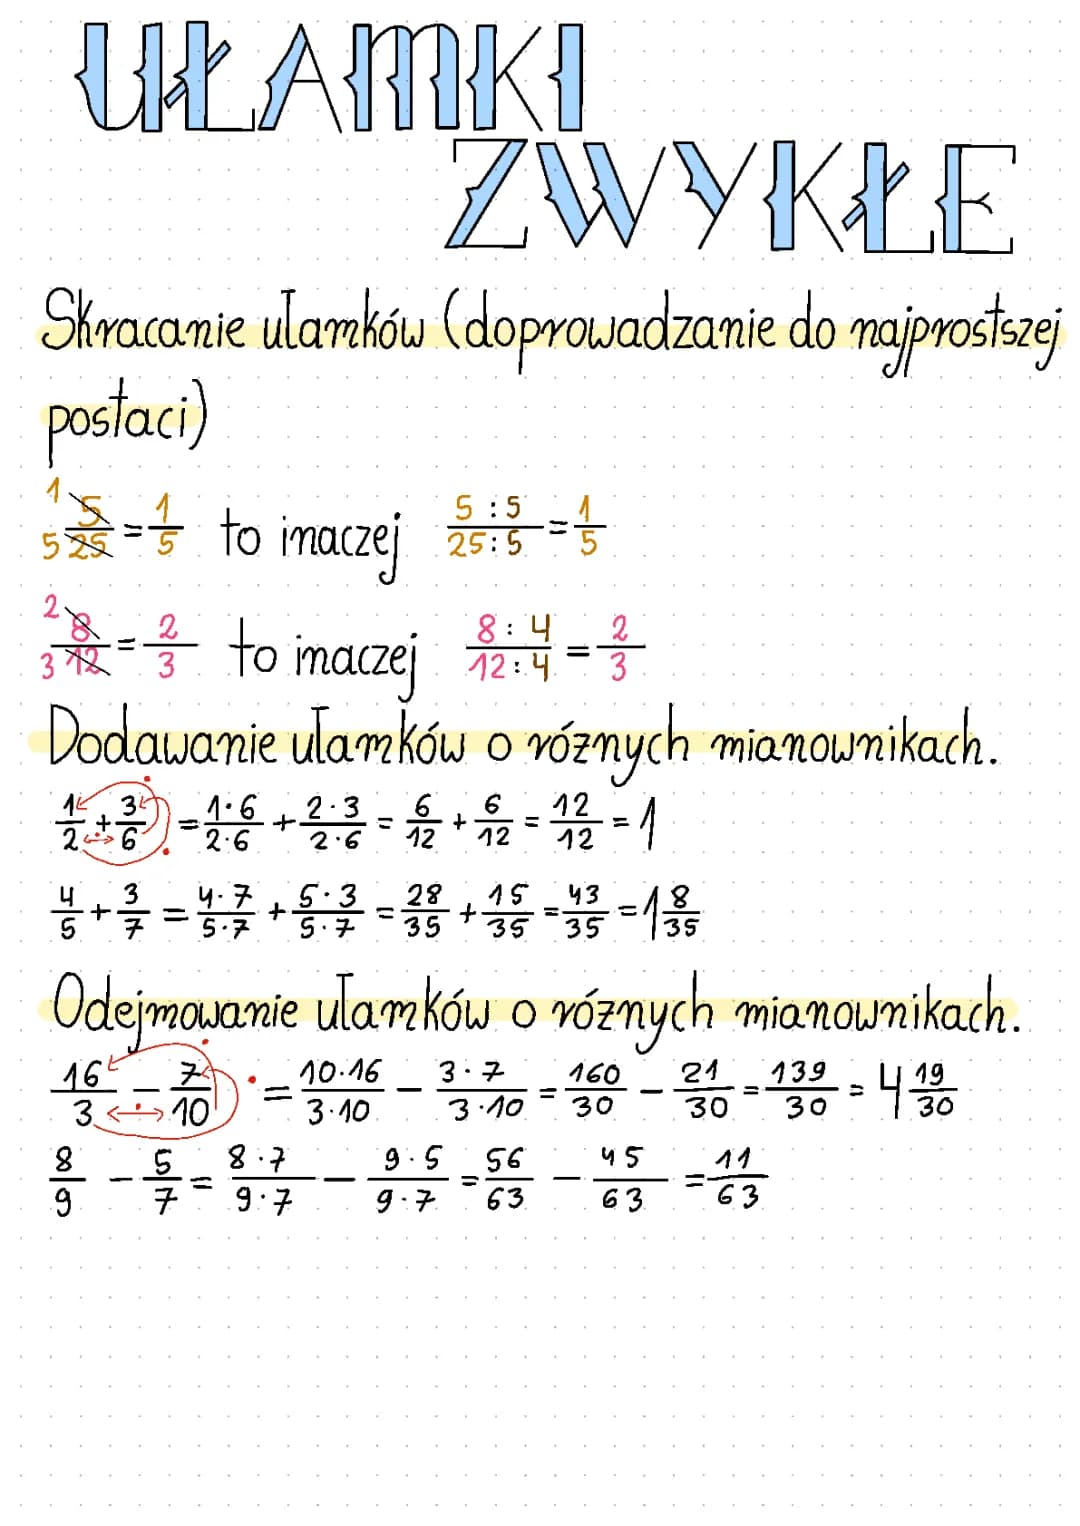 UŁAMKI
ZWYKŁE
Skracanie ułamków (doprowadzanie do najprostszej
postaci)
1 5 / 5 25 = 1/5 to inaczej 5:5 / 25:5 = 1/5
2 8 / 3 12 = 2/3 to inaczej 8:4 / 12:4 = 2/3
Dodawanie ułamków o różnych mianownikach.
1/2 + 3/6 = 1·6 / 2·6 + 2·3 / 2·6 = 6/12 + 6/12 = 12/12 = 1
4/5 + 3/7 = 4·7 / 5·7 + 5·3 / 5·7 = 28/35 + 15/35 = 43/35 = 1 8/35
Odejmowanie ułamków o różnych mianownikach.
16/3 - 7/10 = 10·16 / 3·10 - 3·7 / 3·10 = 160/30 - 21/30 = 139/30 = 4 19/30
8/9 - 5/7 = 8·7 / 9·7 - 9·5 / 9·7 = 56/63 - 45/63 = 11/63